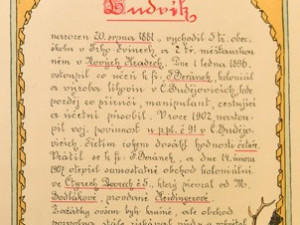 Ludvík
narozen 20. srpna 1881, vychodil 5 tř. obec.
školu v Trhy Svinech, a 2 tř. měšťanskou
něm v Nových Hradech. Dne 1 ledna 1896.
vstoupil co učeň k fi. F. Beránek, koloniál
a výroba lihovin v Č. Budějovicích, kde
později co příručí, manipulant, cestující
a účetní působil. V roce 1902 nastou-
pil voj. povinnost u p. pl. č 91 v Č. Budějo-
vicích. Sletím rokem dosáhl hodnosti četaře.
Vrátil se k fi. F. Beránek, a dne 14. února
1907 otevřel samostatně obchod koloniální.
ve Čtyrech Dvorech č 5., který převzal od M.
Sedlákové, provdané Neidingerové.
Začátky ovšem byly krušné, ale obchod